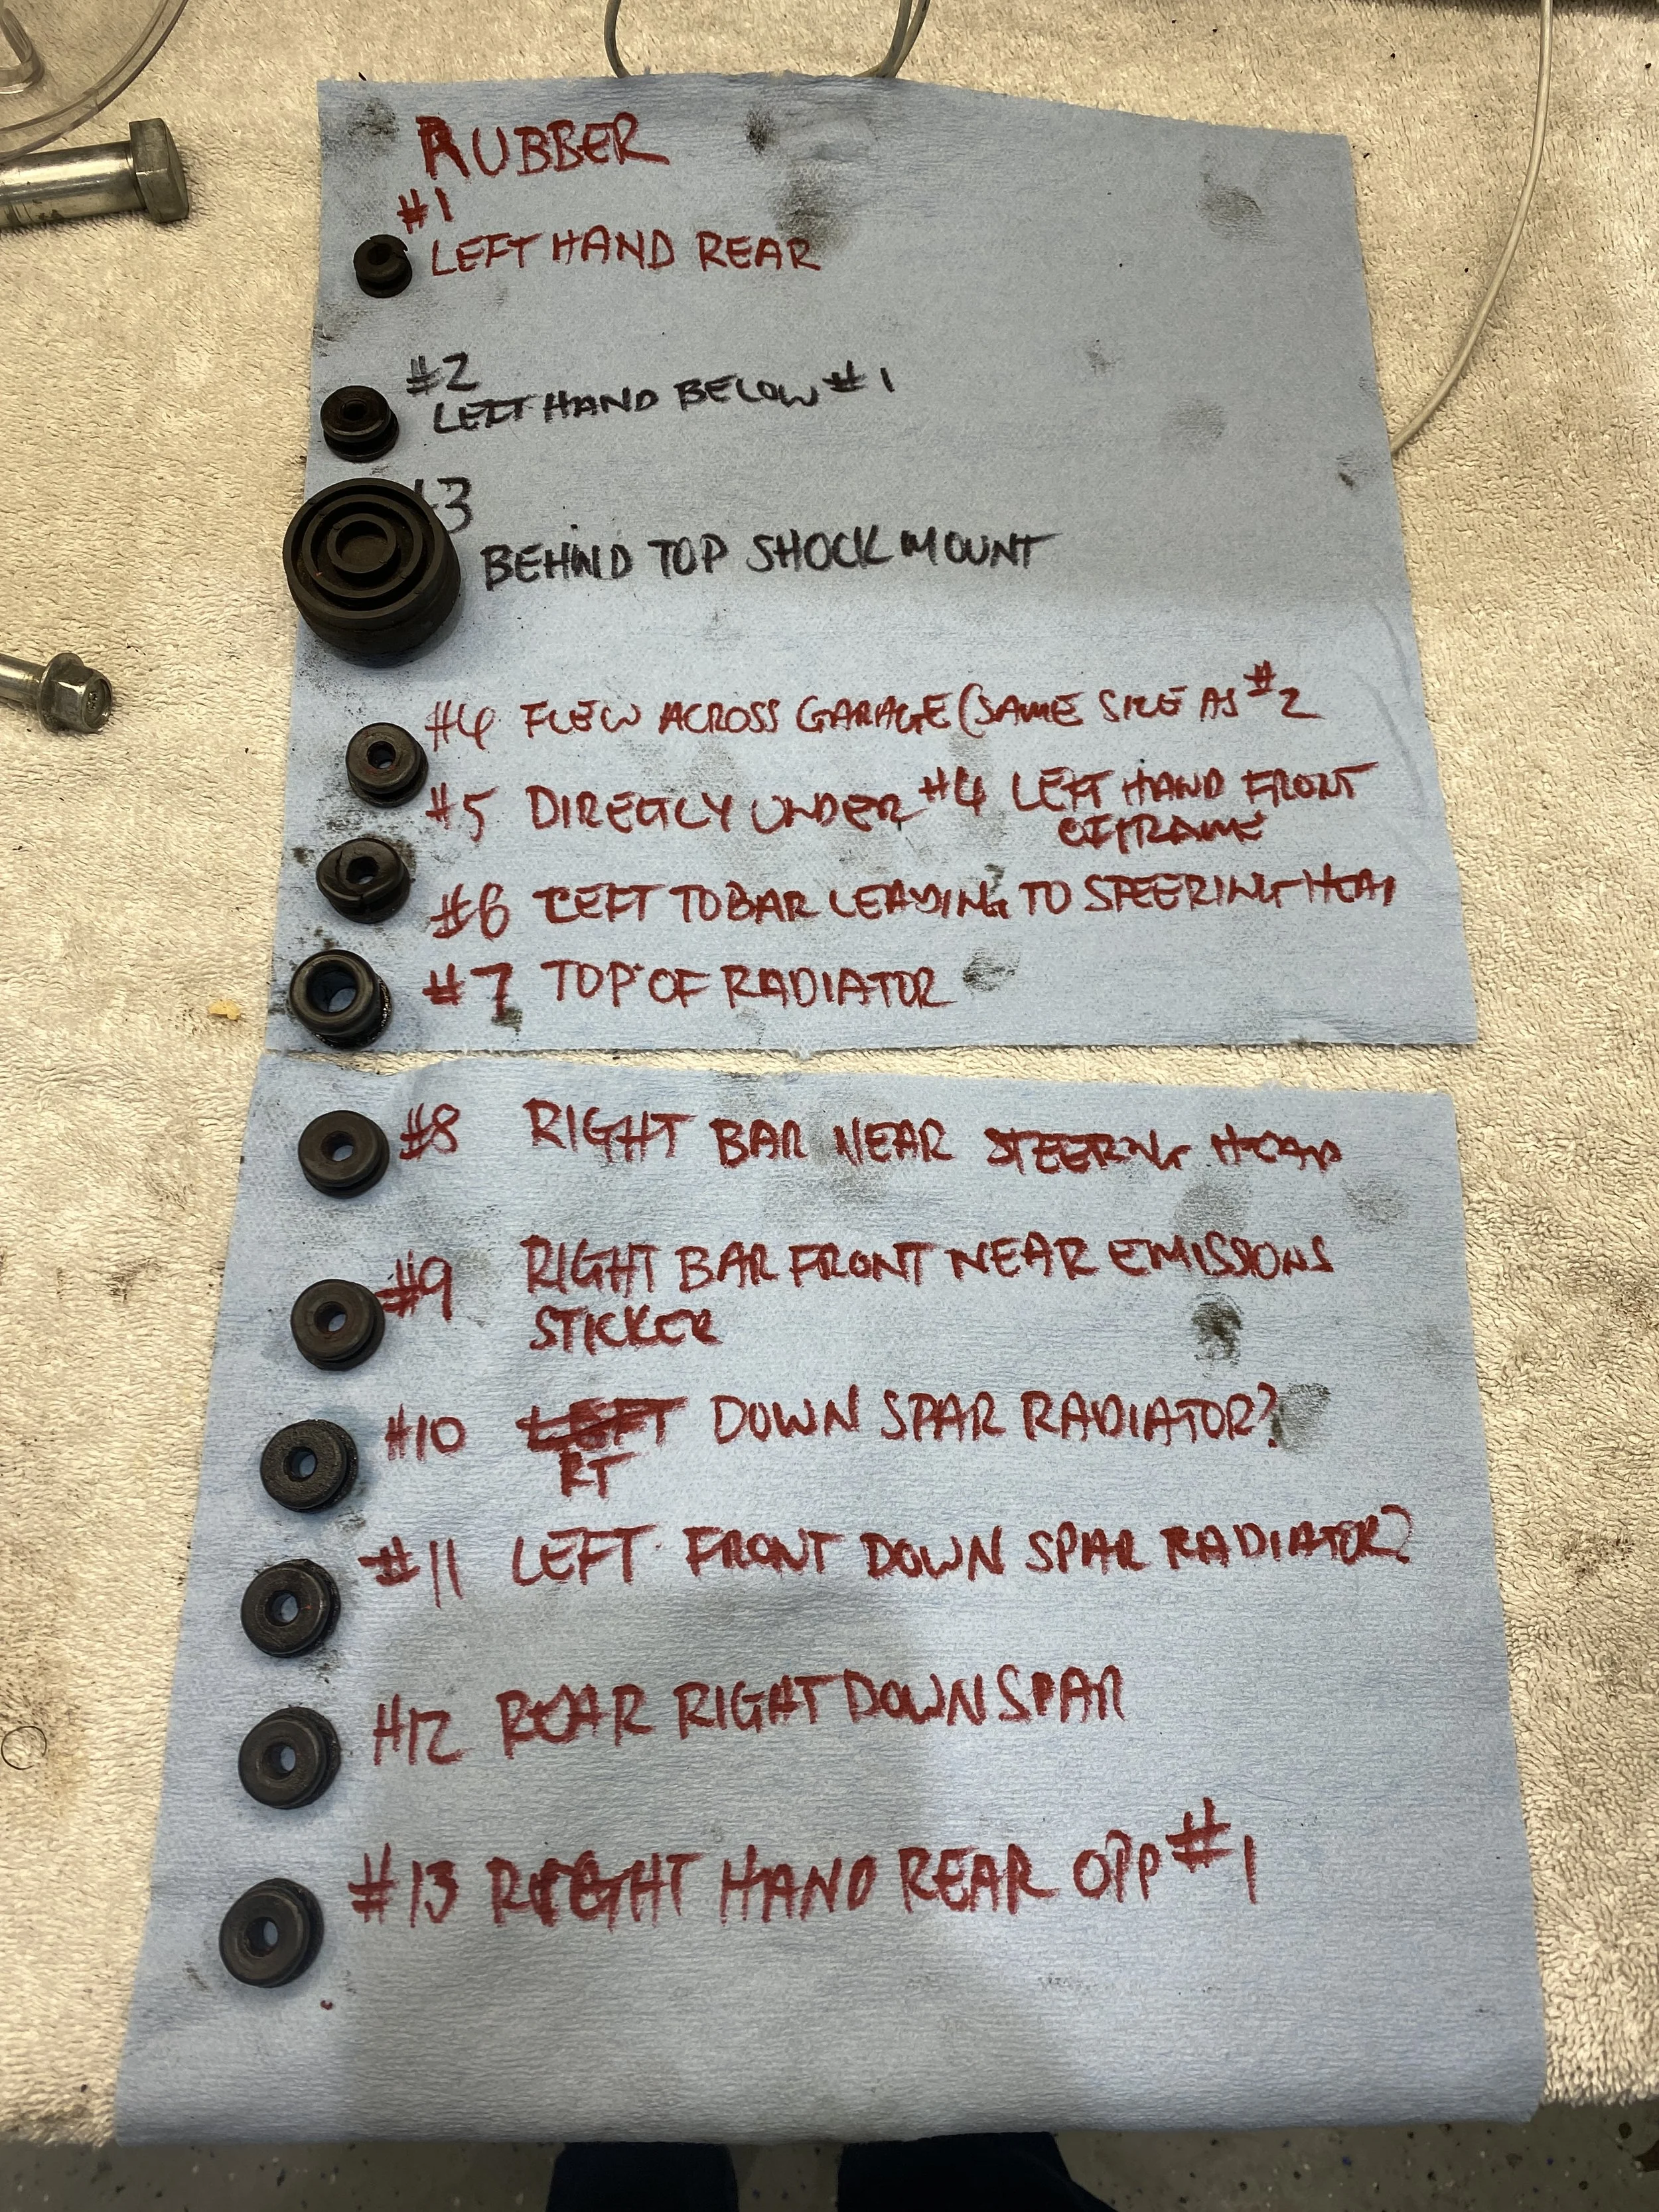 RUBBER
#1
LEFT HAND REAR
#2
LEFT HAND BELOW #1
#3
BEHIND TOP SHOCK MOUNT
#4 FLEW ACROSS GARAGE (SAME SIZE AS #2
#5 DIRECTLY UNDER #4 LEFT HAND FRONT
OF FRAME
#6 LEFT TOBAR LEADING TO STEERING HEAD
#7 TOP OF RADIATOR
#8 RIGHT BAR NEAR STEERING HEAD
#9 RIGHT BAR FRONT NEAR EMISSIONS
STICKER
#10 LEFT DOWN SPAR RADIATOR?
RT
#11 LEFT FRONT DOWN SPAR RADIATOR?
#12 REAR RIGHT DOWN SPAR
#13 RIGHT HAND REAR OPP #1